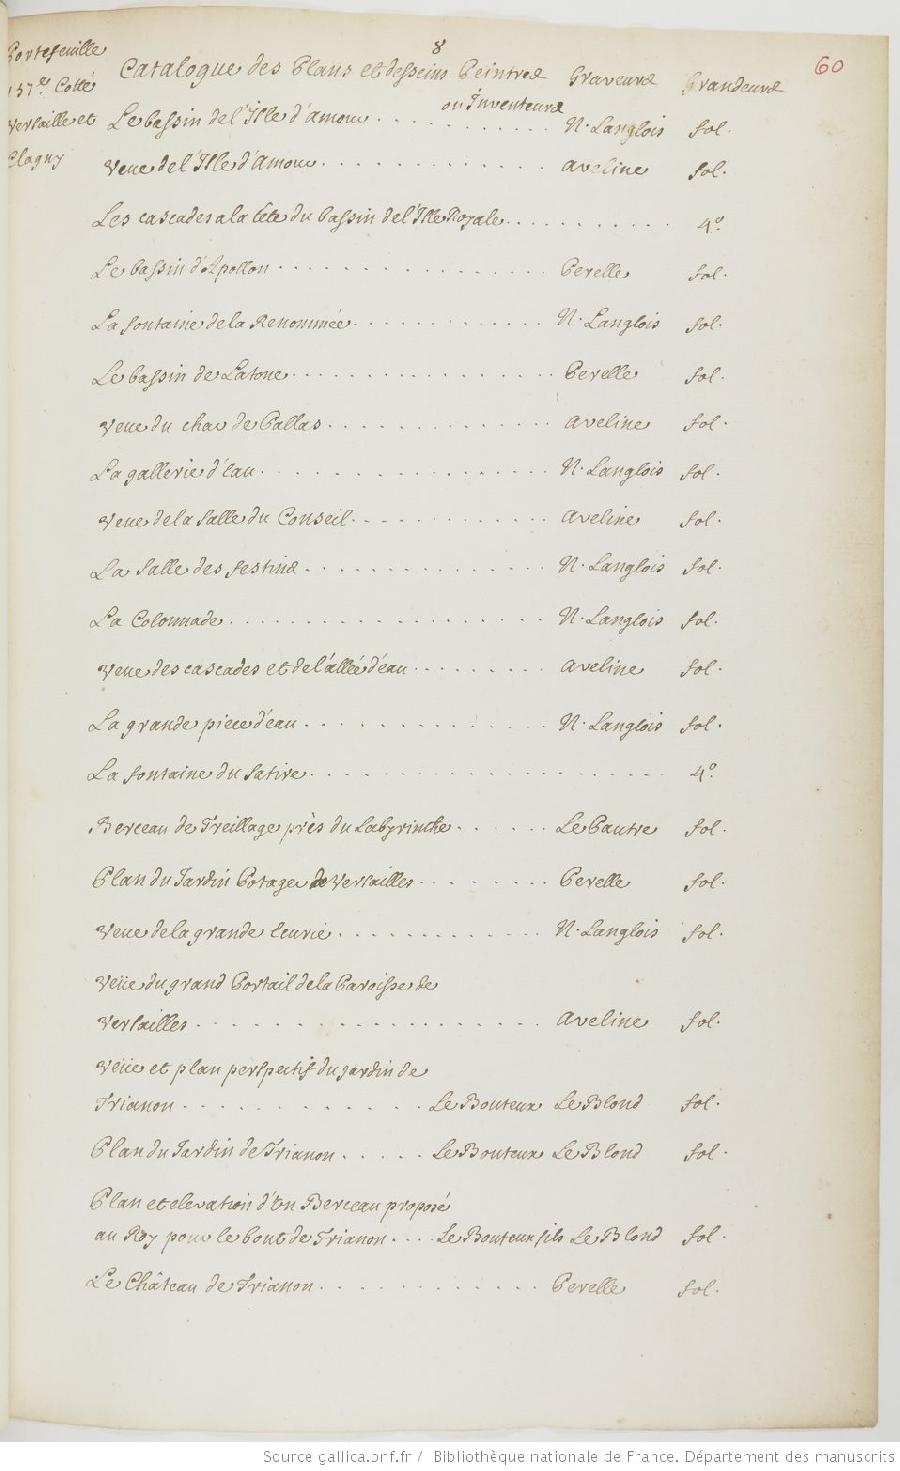 8
60
Portefeuille
157e. Cotté
Versaille et
Clagny
Catalogue des Plans et desseins Peintres Graveurs Grandeurs
ou Inventeurs
Le bassin de l'Isle d'amour . . . . . . . . . . . N. Langlois fol.
Veue de l'Isle d'Amour . . . . . . . . . . . . . Aveline fol.
Les cascades a la tete du bassin de l'Isle Royale . . . . . . . . . . 4o.
Le bassin d'Apollon . . . . . . . . . . . . . . . . Perelle fol.
La fontaine de la Renommée . . . . . . . . . . . . N. Langlois fol.
Le bassin de Latone . . . . . . . . . . . . . . . . Perelle fol.
Veue du char de Pallas . . . . . . . . . . . . . Aveline fol.
La gallerie d'eau . . . . . . . . . . . . . . . . . N. Langlois fol.
Veue de la salle du Conseil . . . . . . . . . . . . Aveline fol.
La salle des festins . . . . . . . . . . . . . . N. Langlois fol.
La Colonnade . . . . . . . . . . . . . . . . . . . N. Langlois fol.
Veue des cascades et de l'allée d'eau . . . . . . . . Aveline fol.
La grande piece d'eau . . . . . . . . . . . . . . N. Langlois fol.
La fontaine du Satire . . . . . . . . . . . . . . . . . . . . . 4o.
Berceau de Treillage près du Labyrinthe . . . . . . Le Pautre fol.
Plan du Jardin Potager de Versailles . . . . . . . . Perelle fol.
Veue de la grande Ecurie . . . . . . . . . . . . . N. Langlois fol.
Veüe du grand Portail de la Paroisse de
Versailles . . . . . . . . . . . . . . . . . . . Aveline fol.
Veüe et plan perspectif du jardin de
Trianon . . . . . . . . . . . . . Le Bouteux Le Blond fol.
Plan du Jardin de Trianon . . . . . Le Bouteux Le Blond fol.
Plan et elevation d'un Berceau proposé
au Roy pour le bout de Trianon . . . . Le Bouteux fils Le Blond fol.
Le Château de Trianon . . . . . . . . . . . . . Perelle fol.
Source gallica.bnf.fr / Bibliothèque nationale de France. Département des manuscrits